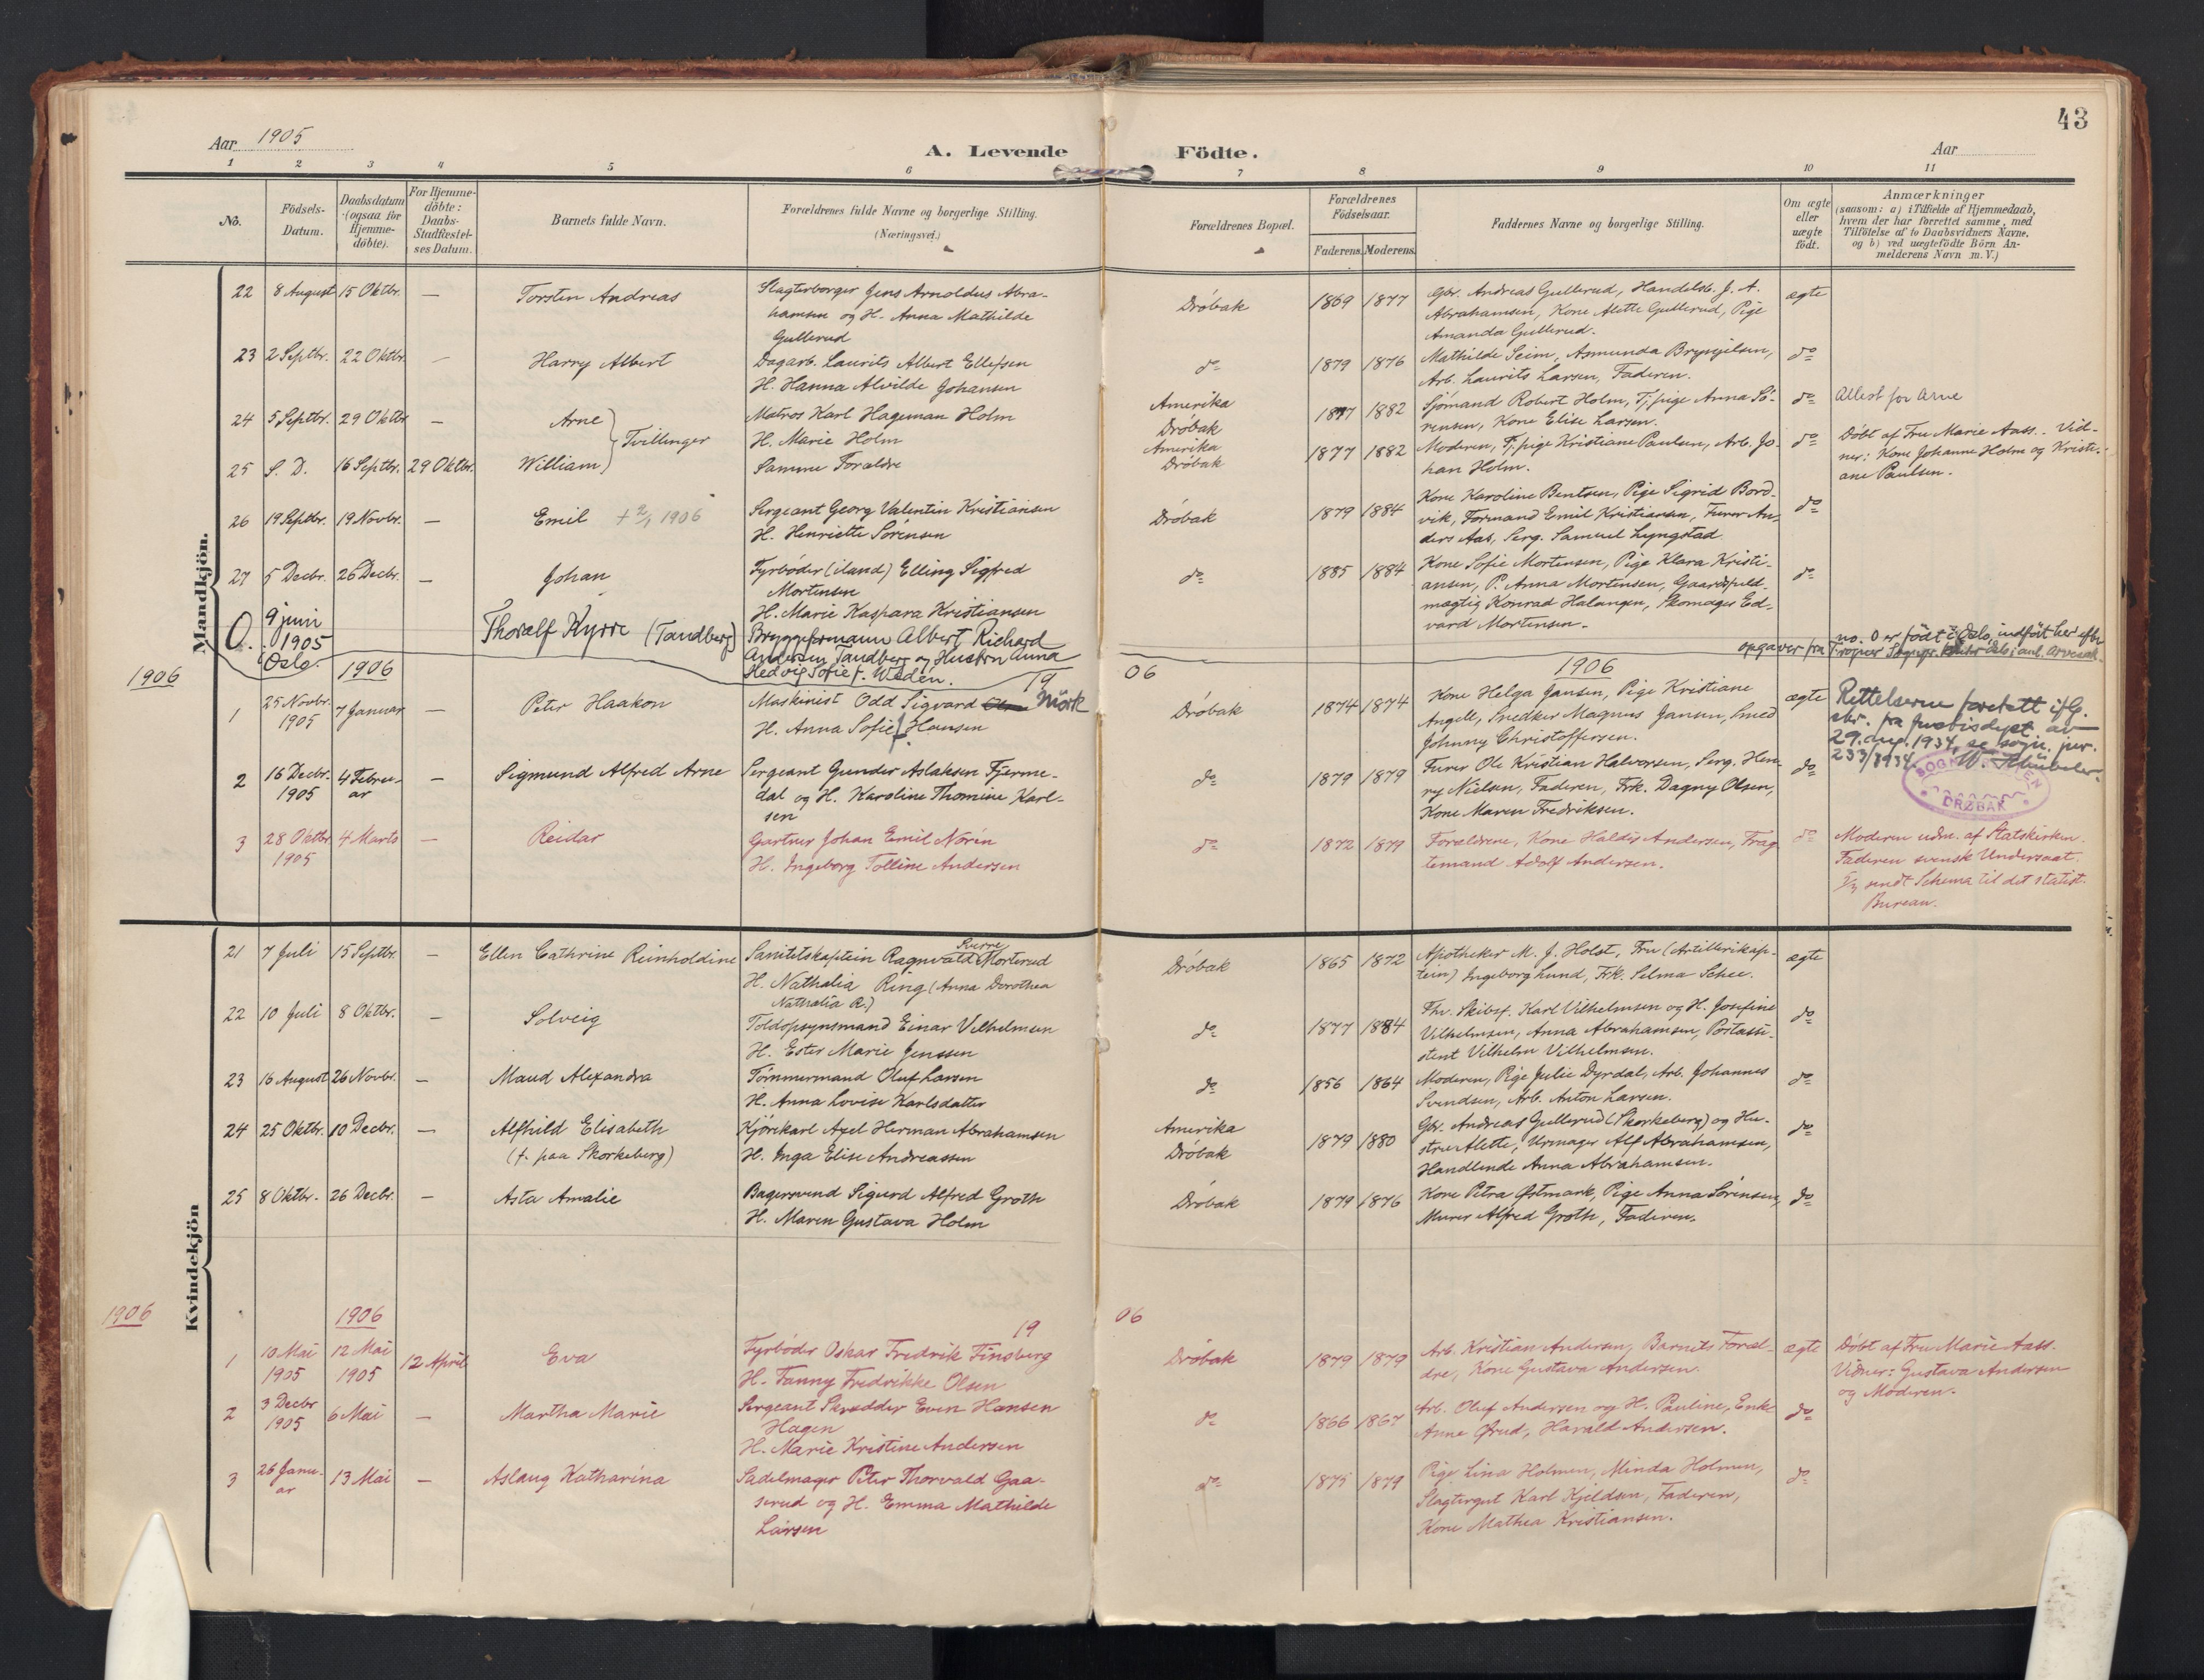 43
Aar 1905
A. Levende Födte.
Aar
1 2 3 4 5 6 7 8 9 10 11
No. Födsels-Datum. Daabsdatum (ogsaa for Hjemme-döbte). For Hjemme-döbte: Daabs-Stadfæstel-ses Datum. Barnets fulde Navn. Forældrenes fulde Navne og borgerlige Stilling. (Næringsvei.) Forældrenes Bopæl. Forældrenes Födselsaar. Faderens. Moderens. Faddernes Navne og borgerlige Stilling. Om ægte eller uægte födt. Anmærkninger (saasom: a) i Tilfælde af Hjemmedaab, hvem der har forrettet samme, med Tilföielse af to Daabsvidners Navne, og b) ved uægtefödte Börn An-melderens Navn m. V.)
Mandkjön.
22 8 August 15 Oktbr. — Torsten Andreas Slagterborger Jens Arnoldus Abra- Dröbak 1869 1877 Gbr. Andreas Gullerud, Handelsb. J. A. ægte
hamsen og H. Anna Mathilde Abrahamsen, Kone Alette Gullerud, Pige
Gullerud Amanda Gullerud.
23 2 Septbr. 22 Oktbr. — Harry Albert Dagarb. Laurits Albert Ellefsen do 1879 1876 Mathilde Seim, Asmunda Brynjelsen, do
H. Hanna Alvilde Johansen Arb. Laurits Larsen, Faderen.
24 5 Septbr. 29 Oktbr — Arne Matros Karl Hageman Holm Amerika 1877 1882 Sjömand Robert Holm, Tj.pige Anna Sö- do Attest for Arne
Tvillinger H. Marie Holm Dröbak rensen, Kone Elise Larsen.
25 S. D. 16 Septbr. 29 Oktbr. William Samme Forældre Amerika Dröbak 1877 1882 Moderen, Tj.pige Kristiane Paulsen, Arb. Jo- do Döbt af Fru Marie Aass. Vid-
han Holm. ner: Kone Johanne Holm og Kristi-
ane Paulsen.
26 19 Septbr. 19 Novbr. — Emil + 2/1 1906 Sergeant Georg Valentin Kristiansen Dröbak 1879 1884 Kone Karoline Bentsen, Pige Sigrid Bord- do
H. Henriette Sörensen vik, Formand Emil Kristiansen, Furer An-
ders Aas, Serg. Samuel Lyngstad.
27 5 Decbr. 26 Decbr. — Johan Fyrböder (iland) Elling Sigfred do 1885 1884 Kone Sofie Mortensen, Pige Klara Kristi- do
Mortensen ansen, P. Anna Mortensen, Gaardsfuld-
H. Marie Kaspara Kristiansen mægtig Konrad Halangen, Skomager Ed-
vard Mortensen.
0. 9 juni 1905 Oslo. Thoralf Kyrre (Tandberg) Bryggeformann Albert Richard no. 0 er födt i Oslo, indfört her efter
Andersen Tandberg og Hustru Anna opgaver fra Sognepr. Oslo
Hedvig Sofie f. Wedén.
1906 1906 19 06 1906
1 25 Novbr. 1905 7 Januar — Peter Haakon Maskinist Odd Sigvard Mörk Dröbak 1874 1874 Kone Helga Jansen, Pige Kristiane ægte Rettelserne foretatt iflg.
H. Anna Sofie f. Hansen Angell, Snedker Magnus Jansen, Smed skr. fra Justisdept. av
Johnny Christoffersen. 29. aug. 1934, se sogn. jur.
2 16 Decbr. 1905 4 Febru-ar — Sigmund Alfred Arne Sergeant Gunder Aslaksen Fjerme- do 1879 1879 Furer Ole Kristian Halvorsen, Serg. Hen- do 233/1934. W. Schübeler.
dal og H. Karoline Thomine Karl- ry Nielsen, Faderen, Frk. Dagny Olsen,
sen Kone Maren Fredriksen.
DRØBAK
3 28 Oktbr 1905 4 Marts — Reidar Gartner Johan Emil Norén do 1872 1879 Forældrene, Kone Haldis Andersen, Frag- do Moderen udm. af Statskirken.
H. Ingeborg Tolline Andersen temand Adolf Andersen. Faderen svensk Undersaat.
sendt Schema til det statist.
Bureau.
Kvindekjön
21 7 Juli 15 Septbr. — Ellen Cathrine Reinholdine Sanitetskaptein Ragnvald Sverre Morterud Dröbak 1865 1872 Apotheker M. J. Holst, Fru (Artillerikap- ægte
H. Nathalia Ring (Anna Dorothea tein) Ingeborg Lund, Frk. Selma Schee.
Nathalia R.)
22 10 Juli 8 Oktbr. — Solveig Toldopsynsmand Einar Vilhelmsen do 1877 1884 Fhv. Skibsf. Karl Vilhelmsen og H. Josefine do
H. Ester Marie Jenssen Vilhelmsen, Anna Abrahamsen, Postassi-
stent Vilhelm Vilhelmsen.
23 16 August 26 Novbr. — Maud Alexandra Tömmermand Oluf Larsen do 1856 1864 Moderen, Pige Julie Dyrdal, Arb. Johannes do
H. Anna Lovise Karlsdatter Svendsen, Arb. Anton Larsen.
24 25 Oktbr. 10 Decbr. — Alfhild Elisabeth Kjörekarl Axel Herman Abrahamsen Amerika 1879 1880 Gbr. Andreas Gullerud (Skorkeberg) og Hu- do
(f. paa Skorkeberg) H. Inga Elise Andreassen Dröbak stru Alette, Urmager Alf Abrahamsen,
Handlende Anna Abrahamsen.
25 8 Oktbr. 26 Decbr. — Asta Amalie Bagersvend Sigurd Alfred Groth Dröbak 1879 1876 Kone Petra Østmark, Pige Anna Sörensen, do
H. Maren Gustava Holm Murer Alfred Groth, Faderen.
1906 1906 19 06
1 10 Mai 1905 12 Mai 1905 12 April Eva Fyrböder Oskar Fredrik Finsberg Dröbak 1879 1879 Arb. Kristian Andersen, Barnets Foræl- ægte Döbt af Fru Marie Aass.
H. Fanny Fredrikke Olsen dre, Kone Gustava Andersen. Vidner: Gustava Andersen
og Moderen.
2 3 Decbr 1905 6 Mai — Martha Marie Sergeant Skrædder Even Hansen do 1866 1867 Arb. Oluf Andersen og H. Pauline, Enke do
Hagen Anne Ørud, Harald Andersen.
H. Marie Kristine Andersen
3 26 Janu-ar 13 Mai — Aslaug Katharina Sadelmager Peter Thorvald Gaa- do 1875 1879 Pige Lina Holmen, Minda Holmen, do
serud og H. Emma Mathilde Slagtergut Karl Kjeldsen, Faderen,
Larsen Kone Mathea Kristiansen.